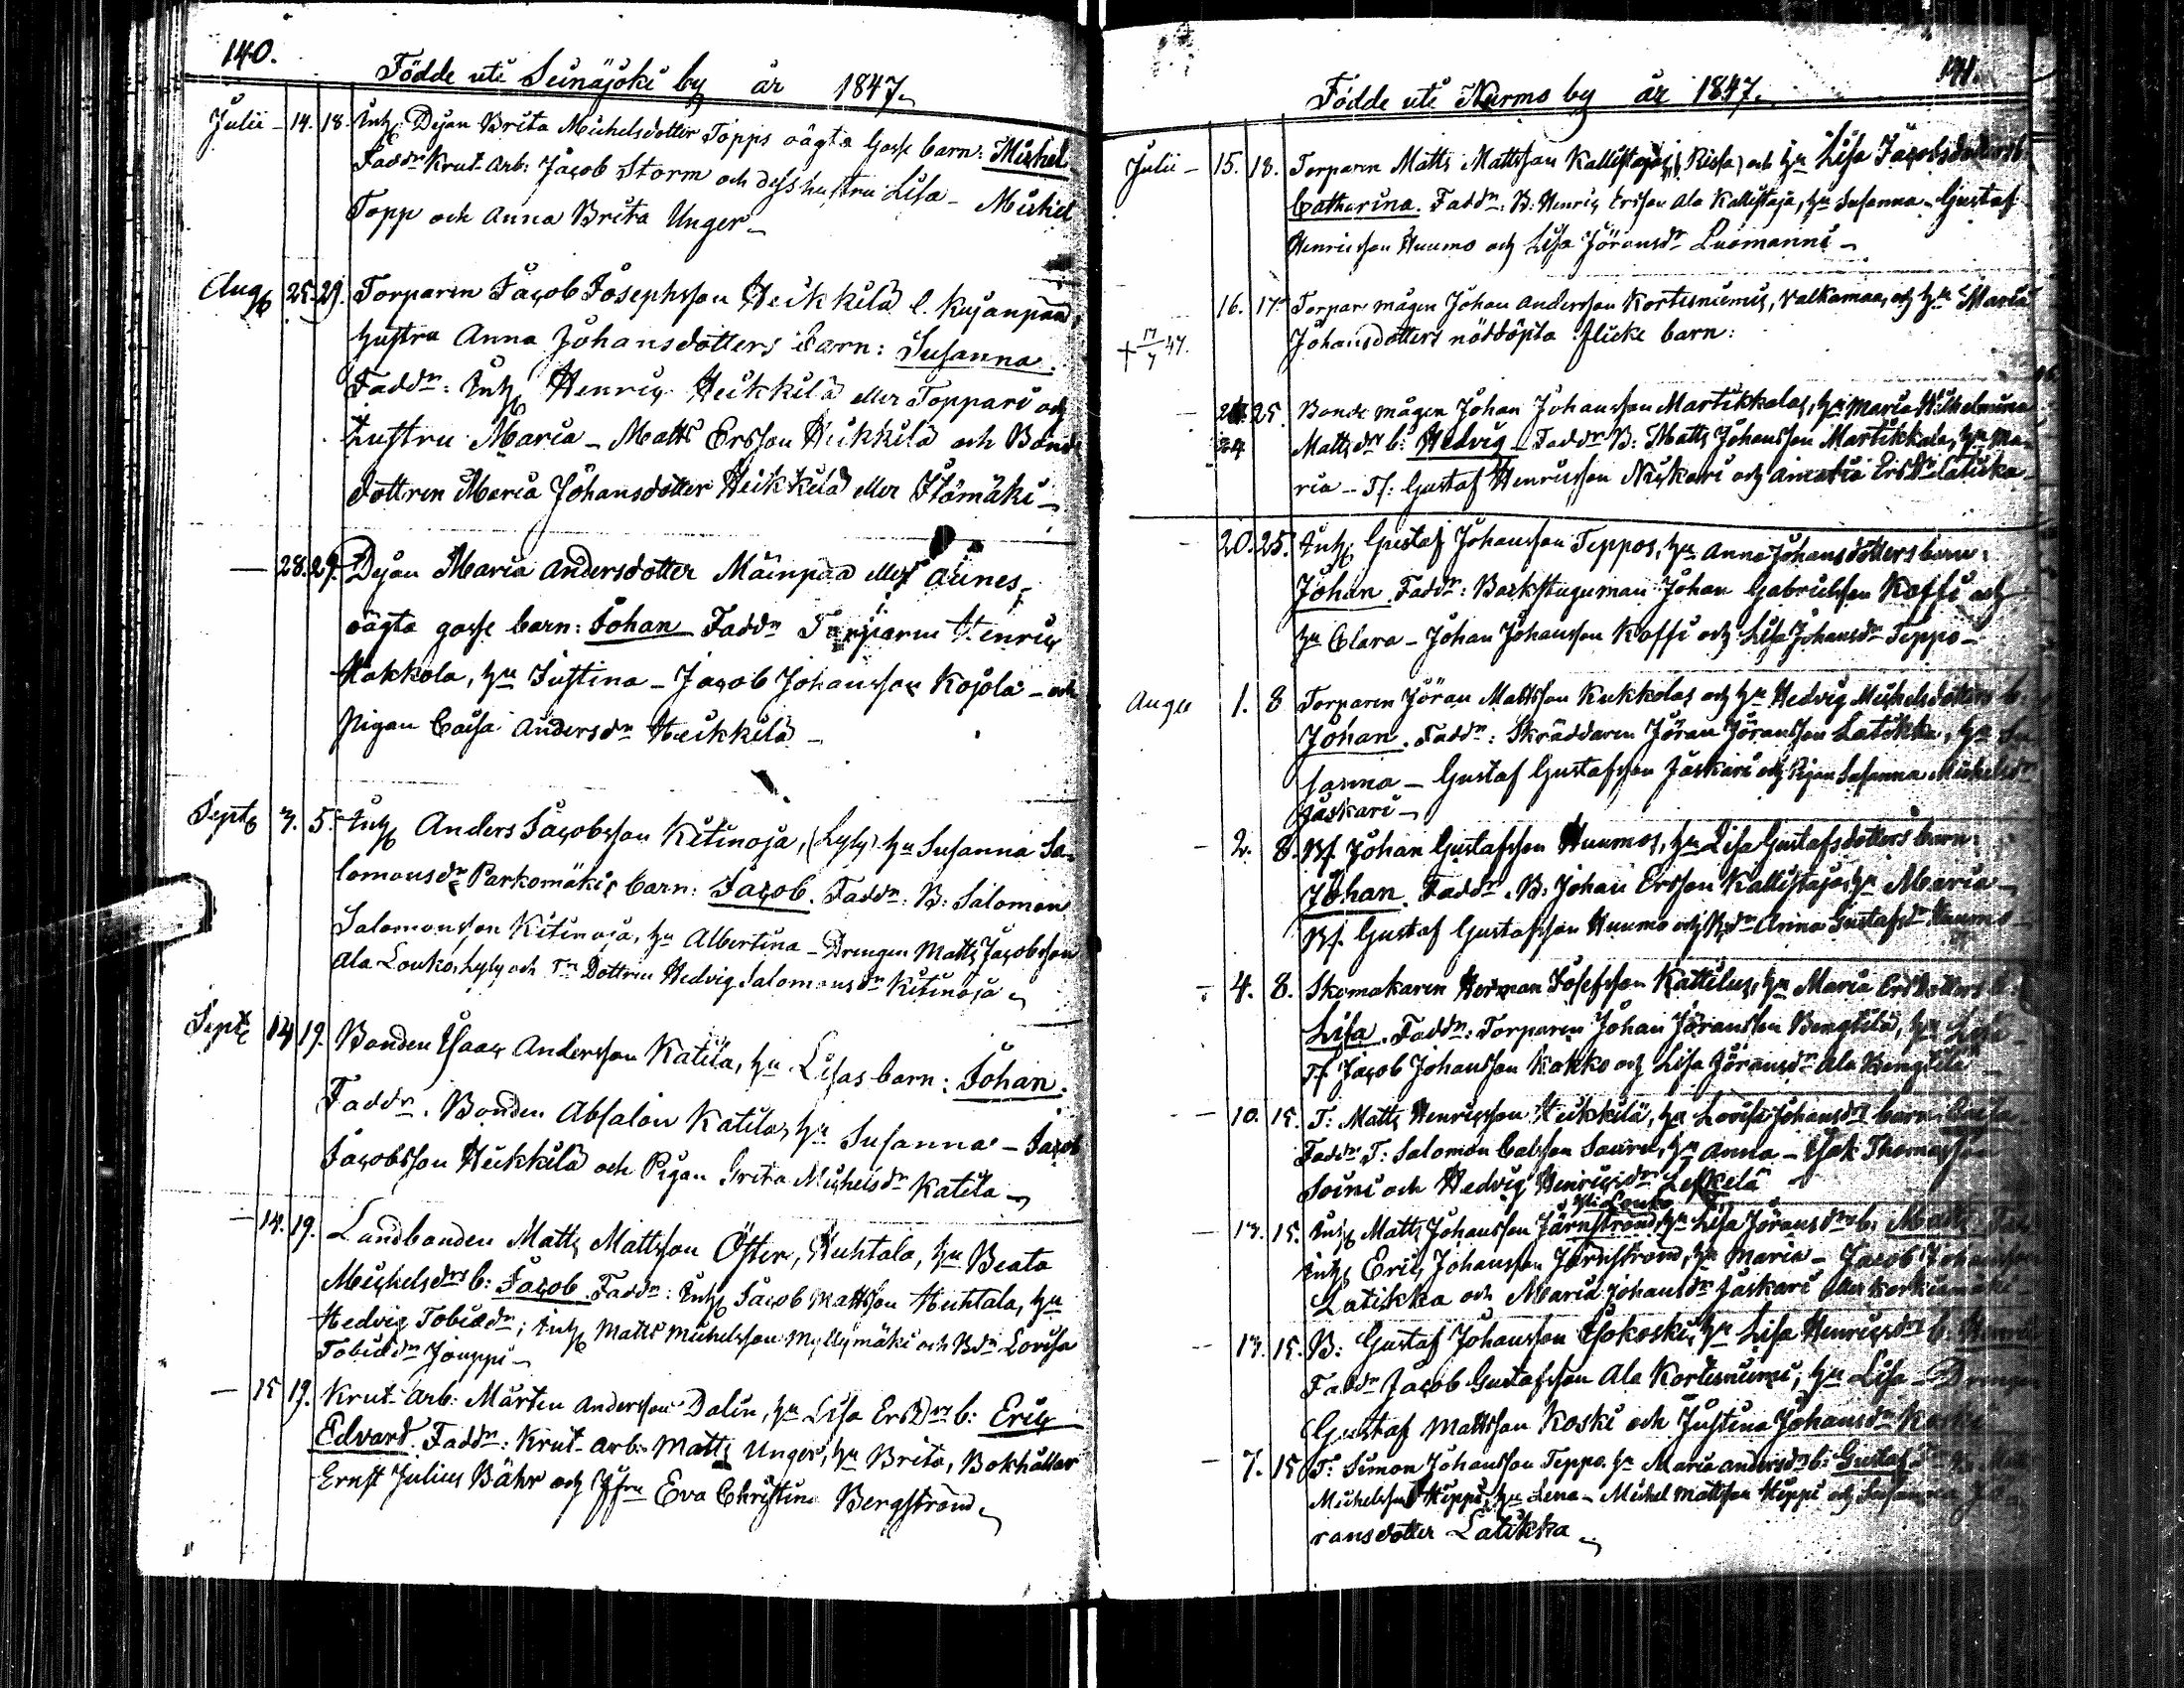 140.
Födde uti Seinäjoki by år 1847.
Julii - 14. 18. Inh: Dejan Brita Michelsdotter Topps oägta Gosse barn: Michel
Faddr Krut-Arb: Jacob Storm och dess hustru Lisa - Michel
Topp och Anna Brita Unger -
Aug 25. 29. Torparen Jacob Josephsson Heikkilä l. Kujanpää,
hustru Anna Johansdotters barn: Susanna.
Faddr: Inh: Henric Heikkilä eller Toppari och
hustru Maria - Matts Ersson Heikkilä och Bonde
dottren Maria Johansdotter Heikkilä eller Ilömäki -
- 28. 29. Dejan Maria Andersdotter Mäenpää eller Aunes,
oägta gosse barn: Johan Faddr Torparen Henric
Hakkola, hu Justina - Jacob Johansson Kojola - och
Pigan Caisa Andersdr Heikkilä -
Sept 3. 5. Inh: Anders Jacobsson Kitinoja, (Lyly) hu Susanna Sa-
lomonsdr Parkomäkis barn: Jacob. Faddr: B: Salomon
Salomonsson Kitinoja, hu Albertina - Drengen Matts Jacobsson
Ala Louko, Lyly och Tr Dottren Hedvig Salomonsdr Kitinoja
Sept 14 19. Bonden Isaac Andersson Katila, hu Lisas barn: Johan.
Faddr. Bonden Absalon Katila, hu Susanna - Jacob
Jacobsson Heikkilä och Pigan Greta Michelsdr Katila -
- 14. 19. Landbonden Matts Mattsson Öster, Huhtala, hu Beata
Michelsdrs b: Jacob. Faddr: Inh: Jacob Mattsson Huhtala, hu
Hedvig Tobiædr; Inh: Matts Michelsson Myllymäki och Bdr Lovisa
Tobiædr Jouppi -
- 15 19. Krut-Arb: Mårten Andersson Dalin, hu Lisa Ersdrs b: Eric
Edvard. Faddr: Krut-Arb: Matts Unger, hu Brita, Bokhållar
Ernst Julius Bähr och Jfru Eva Christina Bergström
141.
Födde uti Nurmo by år 1847.
Julii - 15. 18. Torparen Matts Mattsson Kallistajas, (Rissa) och hu Lisa Jacobsdotters b:
Catharina. Faddr: B: Henric Ersson Ala Kallistaja, hu Susanna - Gustaf
Henricsson Huumo och Lisa Jöransdr Luomanni -
16. 17. Torpar mågen Johan Andersson Kortesniemis, Valkamaa, och hu Maria
+ 17/7 47. Johansdotters nöddöpta flicke barn:
- 25. Bonde mågen Johan Johansson Martikkalas, hu Maria Wilhelmina
24 Mattsdrs b: Hedvig - Faddr B: Matts Johansson Martikkala, hu Ma-
ria - Tf: Gustaf Henricsson Niskari och Amalia Ersdr Latikka
- 20. 25. Inh: Gustaf Johansson Teppos, hu Anna Johansdotters barn:
Johan. Faddr: Backstuguman Johan Gabrielsson Kossi och
hu Clara - Johan Johansson Kossi och Lisa Johansdr Teppo -
Augu 1. 8 Torparen Jöran Mattsson Kukkolas och hu Hedvig Michelsdotters b:
Johan. Faddr: Skräddaren Jöran Jöransson Latikka, hu Su
sanna - Gustaf Gustafsson Jäskari och Pigan Susanna Michelsdr
Jäskari -
- 2. 8. Bf. Johan Gustafsson Huumos, hu Lisa Gustafsdotters barn:
Johan. Faddr. B: Johan Ersson Kallistaja, hu Maria -
Bf. Gustaf Gustafsson Huumo och Bdr Anna Gustafsdr Huumo
- 4. 8. Skomakaren Herman Josefsson Kattilus, hu Maria Ersdotters b:
Lisa. Faddr: Torparen Johan Jöransson Bengtilä, hu Lisa -
Tf. Jacob Johansson Kokko och Lisa Jöransdr Ala Bengtilä
- 10. 15. T: Matts Henricsson Heikkilä, hu Lovisa Johansdrs barn: Caisa.
Faddr T: Salomon Saura, hu Anna - Isak Thomasson
Soini och Hedvig Henricsdr Leskelä
Yli Louko
- 13. 15. Inh: Matts Johansson Järnström, hu Lisa Jöransdrs b: Matts
Inh: Eric Johansson Järnström, hu Maria - Jacob Johansson
Latikka och Maria Johansdr Jäskari eller Korkiamäki -
- 13. 15. B: Gustaf Johansson Isokoski, hu Lisa Henricsdrs b: Henric
Faddr Jacob Gustafsson Ala Kortesniemi, hu Lisa - Drengen
Gustaf Mattsson Koski och Justina Johansdr Koski
- 7. 15 T: Simon Johansson Teppo. hu Maria Andersdrs b: Gustaf
Michelsson Hippi, hu Lena - Michel Mattsson Hippi och Susanna Jö
ransdotter Latikka